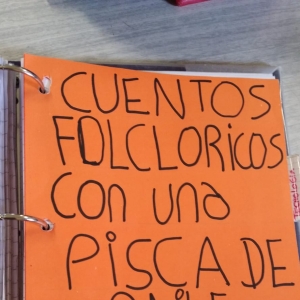 CUENTOS
FOLCLORICOS
CON UNA
PISCA DE